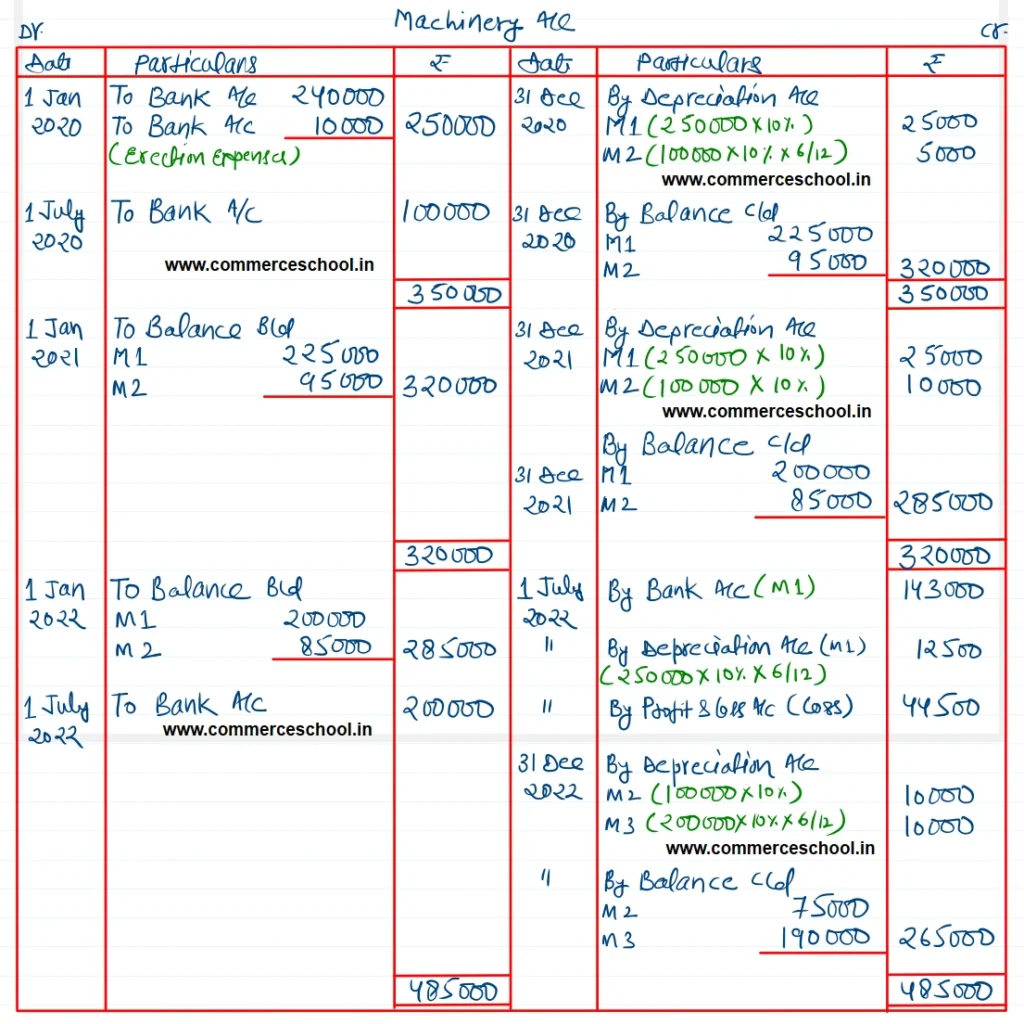 Machinery A/c
Dr. Cr.
Date Particulars ₹ Date Particulars ₹
1 Jan To Bank A/c 240000 31 Dec By Depreciation A/c
2020 To Bank A/c 10000 250000 2020 M1 (250000 X 10%) 25000
(Erection Expenses) M2 (100000 X 10% X 6/12) 5000
www.commerceschool.in
1 July To Bank A/C 100000 31 Dec By Balance C/d
2020 2020 M1 225000
www.commerceschool.in M2 95000 320000
350000 350000
1 Jan To Balance B/d 31 Dec By Depreciation A/c
2021 M1 225000 2021 M1 (250000 X 10%) 25000
M2 95000 320000 M2 (100000 X 10%) 10000
www.commerceschool.in
By Balance c/d
31 Dec M1 200000
2021 M2 85000 285000
320000 320000
1 Jan To Balance B/d 1 July By Bank A/c (M1) 143000
2022 M1 200000 2022
M2 85000 285000 " By Depreciation A/c (M1) 12500
(250000 X 10% X 6/12)
1 July To Bank A/c 200000 " By Profit & Loss A/c (Loss) 44500
2022 www.commerceschool.in
31 Dec By Depreciation A/c
2022 M2 (100000 X 10%) 10000
M3 (200000 X 10% X 6/12) 10000
www.commerceschool.in
" By Balance C/d
M2 75000
M3 190000 265000
485000 485000